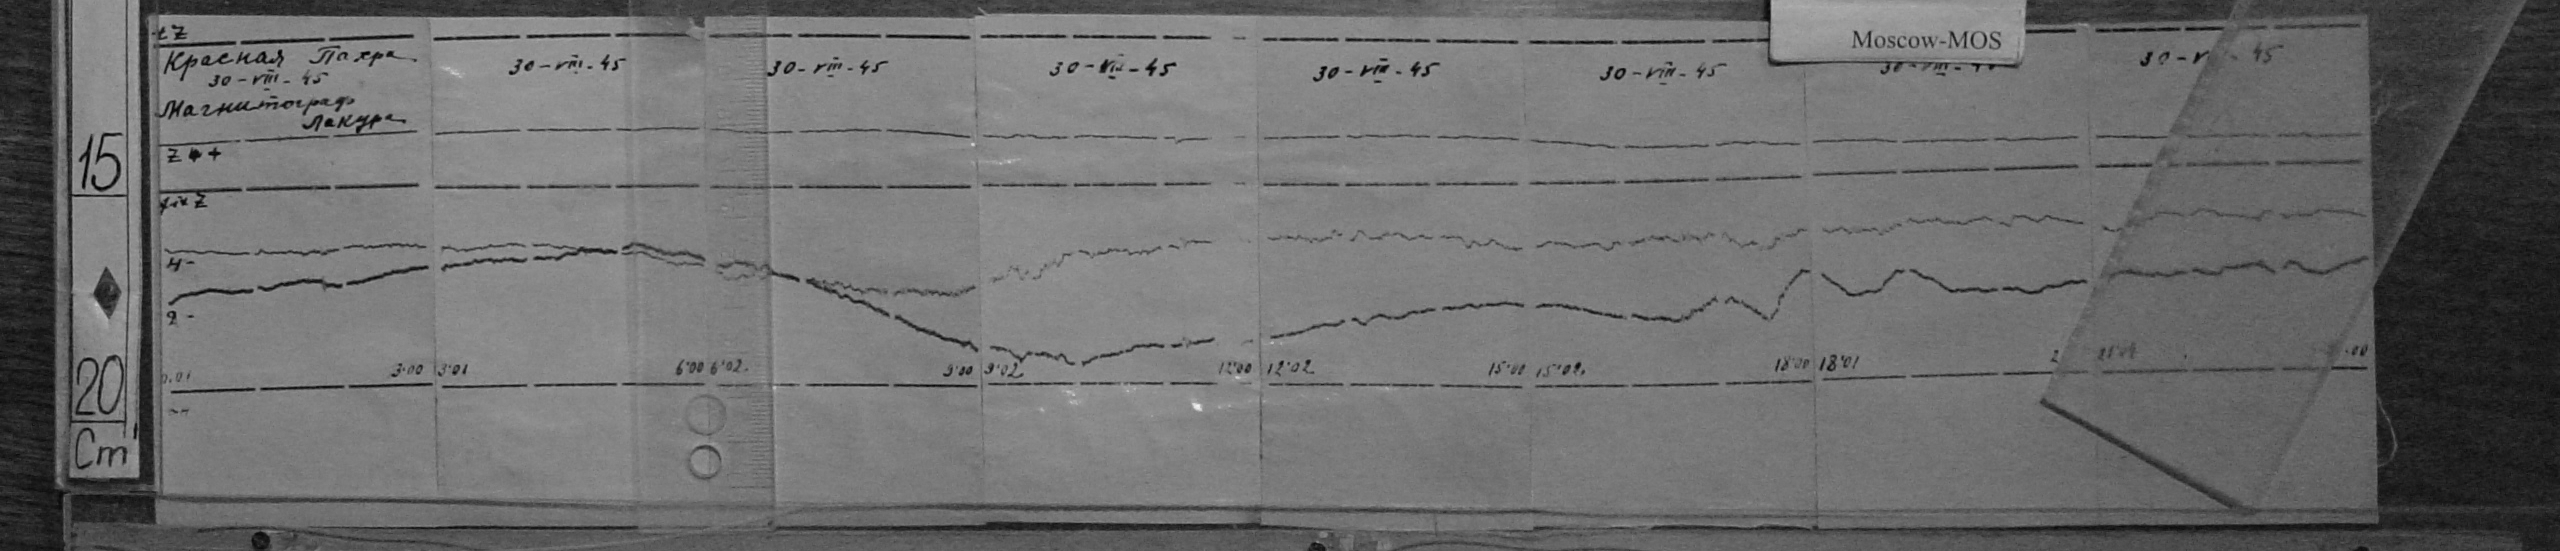 tZ
Красная Пахра
30-VIII-45
Магнитограф
Лакура
Z ++
fix Z
H-
30-VIII-45
30-VIII-45
30-VIII-45
30-VIII-45
30-VIII-45
30-V 45
Moscow-MOS
0.01
3.00
3'01
6'00
6'02
9'00
9'02
12'00
12'02
15'00
15'02
18'00
18'01
15
20
Cm